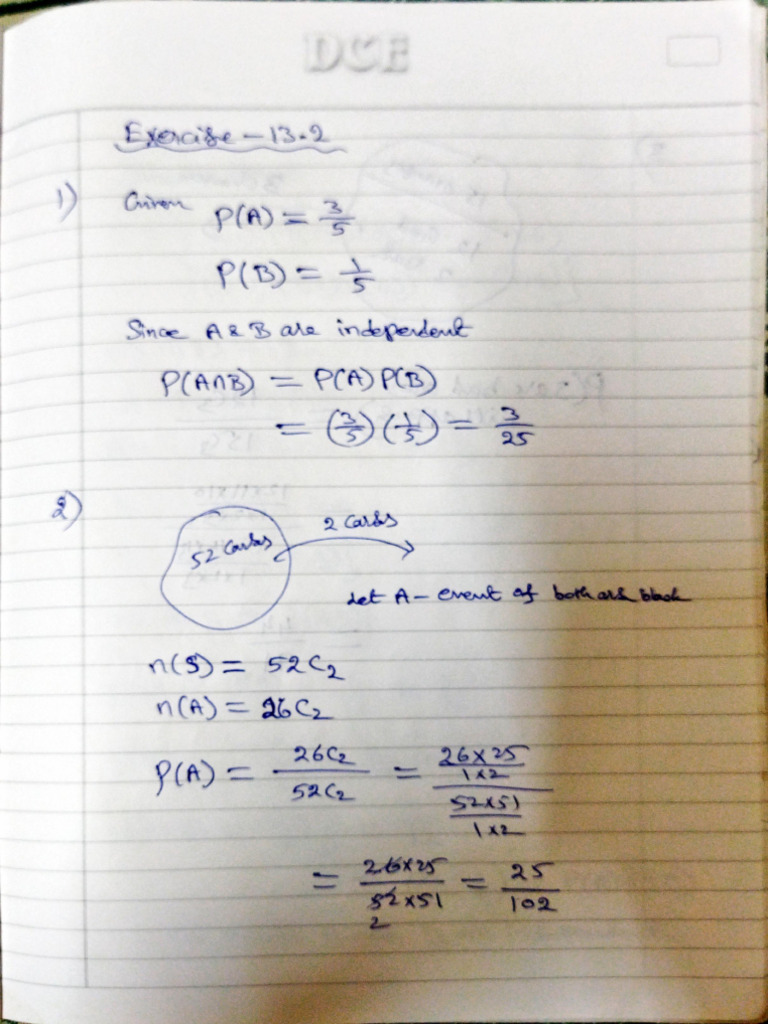 DCE
Exercise - 13.2
1) Given P(A) = 3/5
P(B) = 1/5
Since A & B are independent
P(A∩B) = P(A) P(B)
= (3/5) (1/5) = 3/25
2) 52 Cards 2 Cards
Let A - event of both are black
n(S) = 52C₂
n(A) = 26C₂
P(A) = 26C₂ / 52C₂ = (26×25 / 1×2) / (52×51 / 1×2)
= 26×25 / 52×51 = 25/102
2